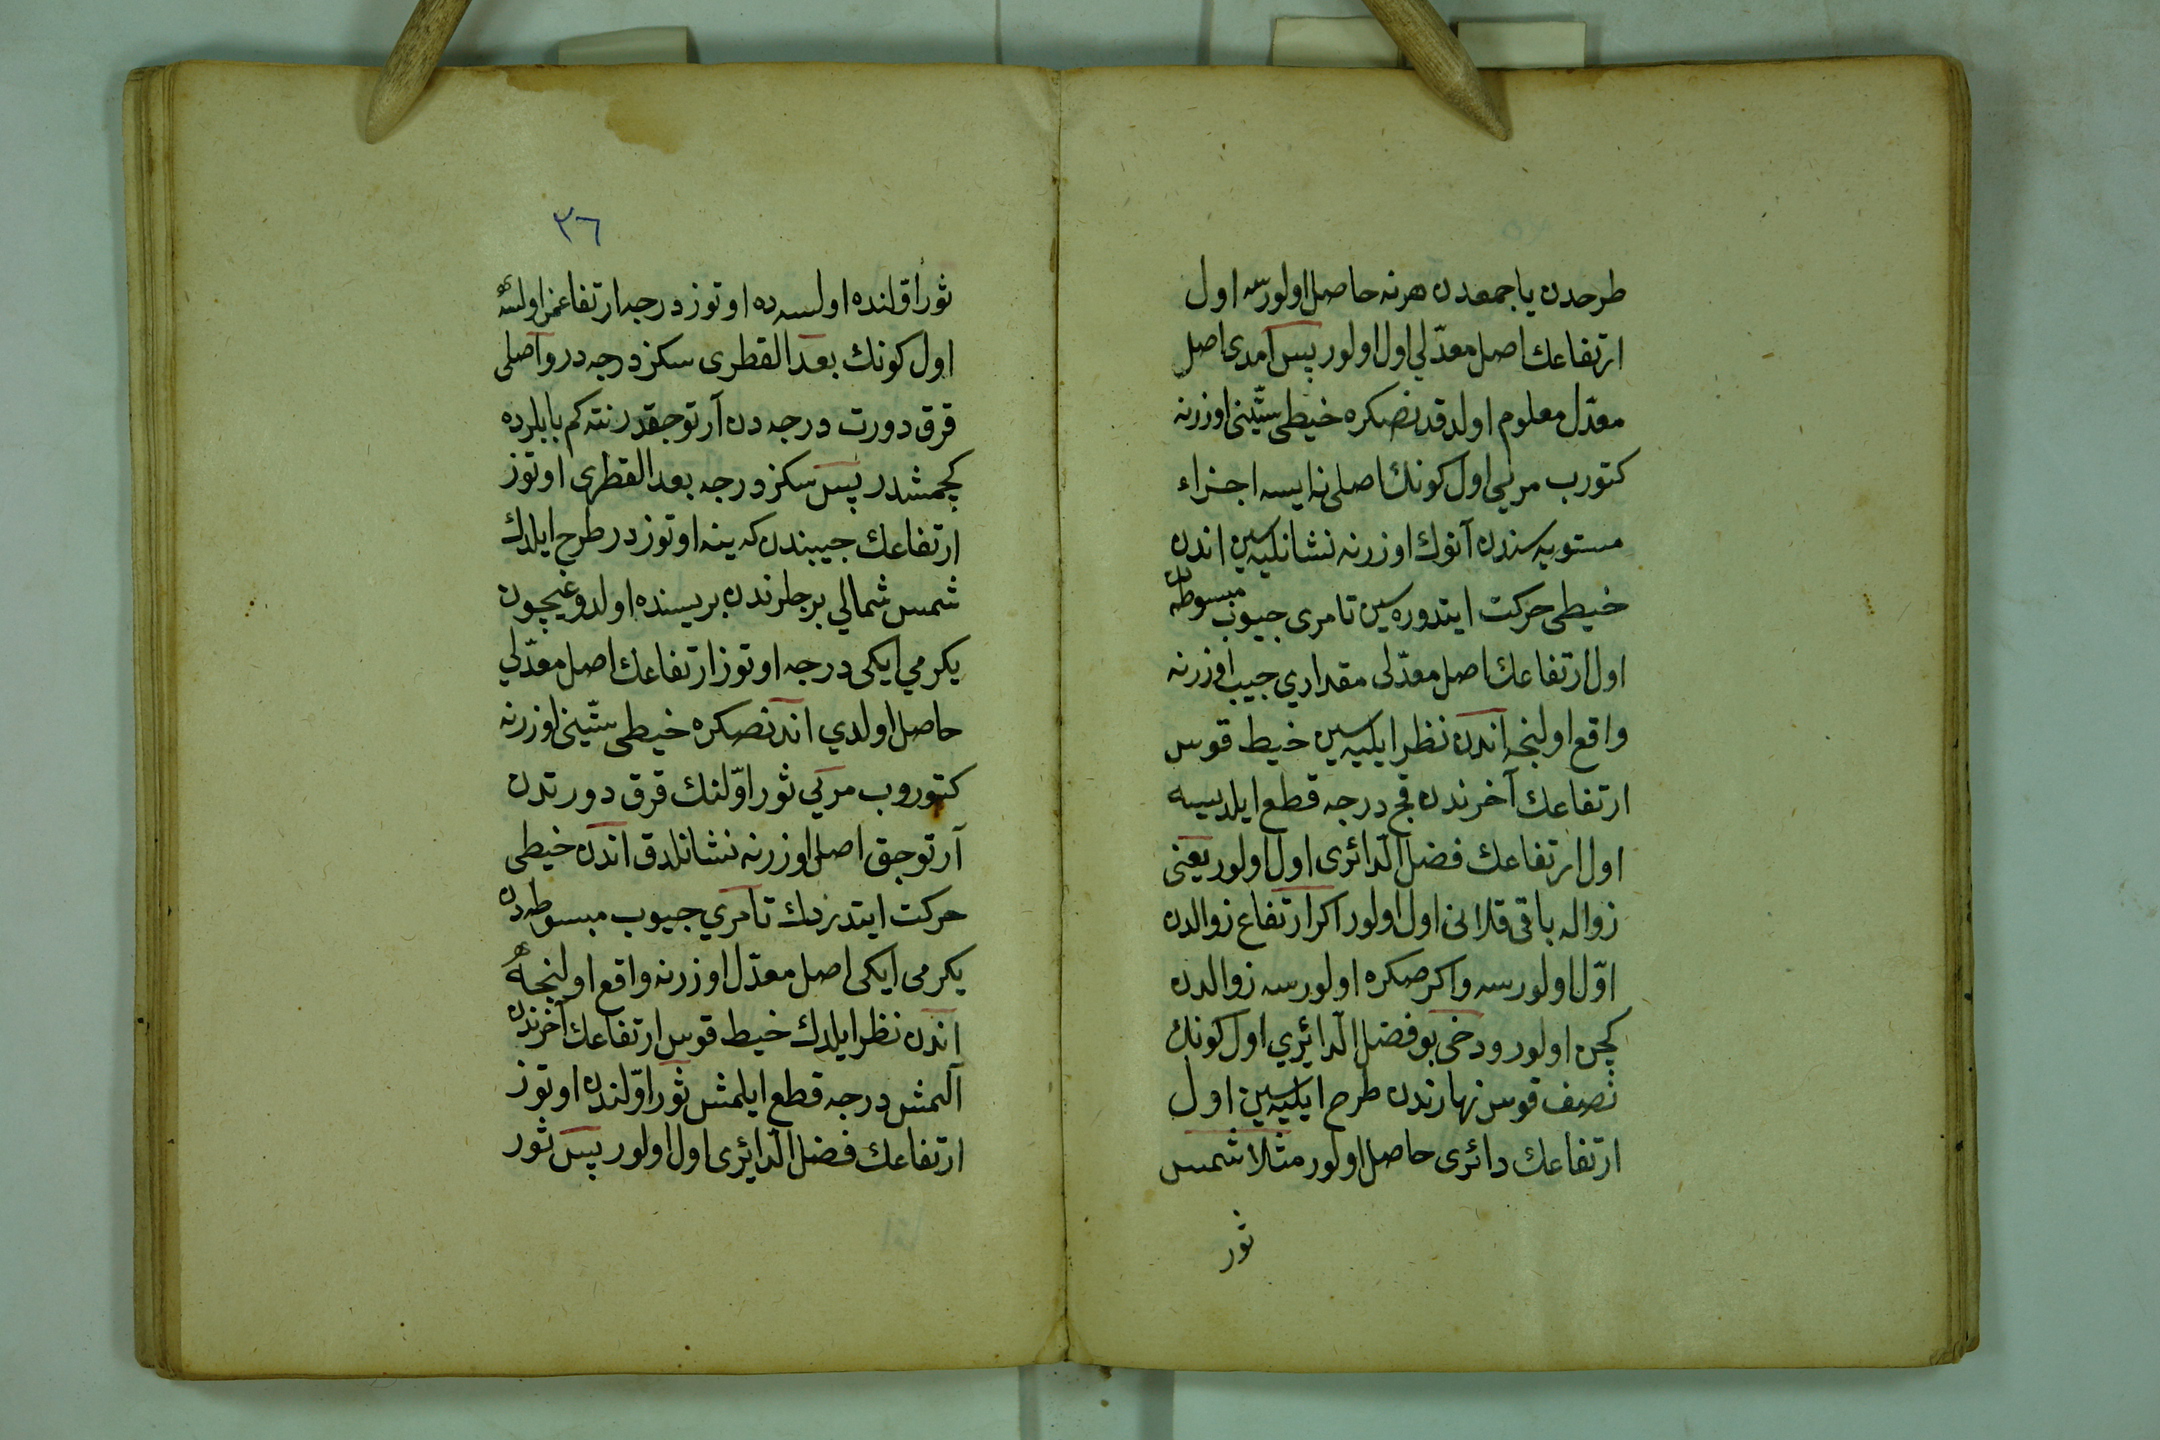 طرحدن یا جمعدن هرنه حاصل اولورسه اول
ارتفاعك اصل معدّلی اول اولور پس امدی اصل
معدّل معلوم اولدقدنصكره خیطی ستّینی اوزرنه
كتورب مریی اول كونك اصلی نه ایسه اجزاء
مستویه سندن آنوك اوزرنه نشانلیه سین اندن
خیطی حركت ایتدوره سین تا مری جیوب مبسوطه دن
اول ارتفاعك اصل معدّلی مقداری جیب اوزرنه
واقع اولنجه اندن نظر ایلیه سین خیط قوس
ارتفاعك آخرندن قچ درجه قطع ایلدیسه
اول ارتفاعك فضل الّدائری اول اولور یعنی
زواله باقی قلانی اول اولور اكر ارتفاع زوالدن
اوّل اولورسه و اكر صكره اولورسه زوالدن
كچن اولور ودخی بو فضل الّدائری اول كونك
نصف قوس نهارندن طرح ایلیه سین اول
ارتفاعك دائری حاصل اولور مثلا شمس
ثور
٣٦
ثور اوّلنده اولسه ده اوتوز درجه ارتفاعمز اولسه
اول كونك بعد القطری سكز درجه در و اصلی
قرق دورت درجه دن آرتوجقدر نته كم بابلرده
كچمشدر پس سكز درجه بعد القطری اوتوز
ارتفاعك جیبندن كه ینه اوتوزدر طرح ایلدك
شمس شمالی برجلرندن بریسنده اولدوغیچون
یكرمی ایكی درجه اوتوز ارتفاعك اصل معدّلی
حاصل اولدی اندنصكره خیطی ستّینی اوزرنه
كتوروب مریی ثور اوّلنك قرق دورتدن
آرتوجق اصلی اوزرنه نشانلدق اندن خیطی
حركت ایتدردك تا مری جیوب مبسوطه دن
یكرمی ایكی اصل معدّل اوزرنه واقع اولنجه
اندن نظر ایلدك خیط قوس ارتفاعك آخرندن
آلتمش درجه قطع ایلمش ثور اوّلنده اوتوز
ارتفاعك فضل الّدائری اول اولور پس ثور